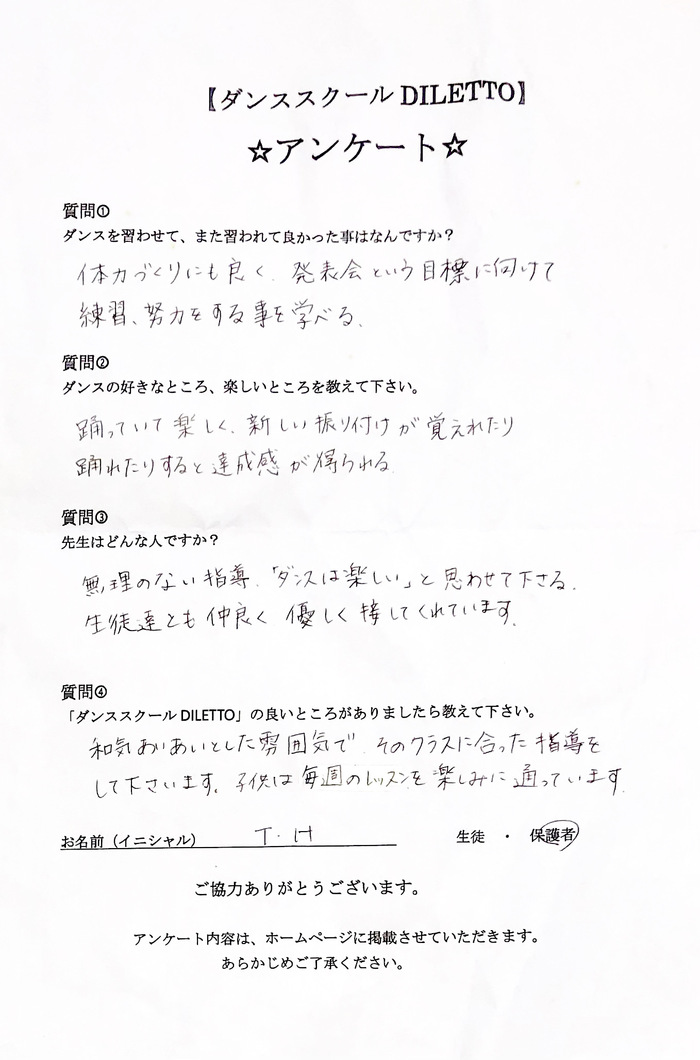 【ダンススクール DILETTO】
☆アンケート☆
質問①
ダンスを習わせて、また習われて良かった事はなんですか？
体力づくりにも良く、発表会という目標に向けて
練習、努力をする事を学べる。
質問②
ダンスの好きなところ、楽しいところを教えて下さい。
踊っていて楽しく、新しい振り付けが覚えれたり
踊れたりすると達成感が得られる
質問③
先生はどんな人ですか？
無理のない指導、「ダンスは楽しい」と思わせて下さる。
生徒達とも仲良く優しく接してくれています。
質問④
「ダンススクール DILETTO」の良いところがありましたら教えて下さい。
和気あいあいとした雰囲気で、そのクラスに合った指導を
して下さいます。子供は毎週のレッスンを楽しみに通っています。
お名前（イニシャル） T・H 生徒 ・ 保護者
ご協力ありがとうございます。
アンケート内容は、ホームページに掲載させていただきます。
あらかじめご了承ください。